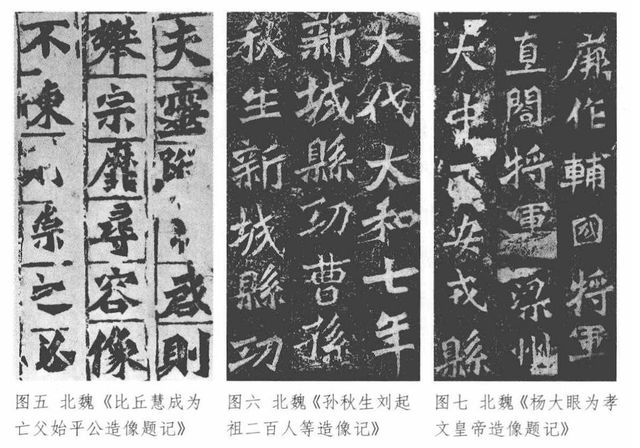 夫靈啟則
攀宗靡尋容像
不陳則崇之必
大代太和七年
新城縣功曹孫
秋生新城縣功
作輔國將軍
直閤將軍梁州
大中正安戎縣
图五 北魏《比丘慧成为
亡父始平公造像题记》
图六 北魏《孙秋生刘起
祖二百人等造像记》
图七 北魏《杨大眼为孝
文皇帝造像题记》